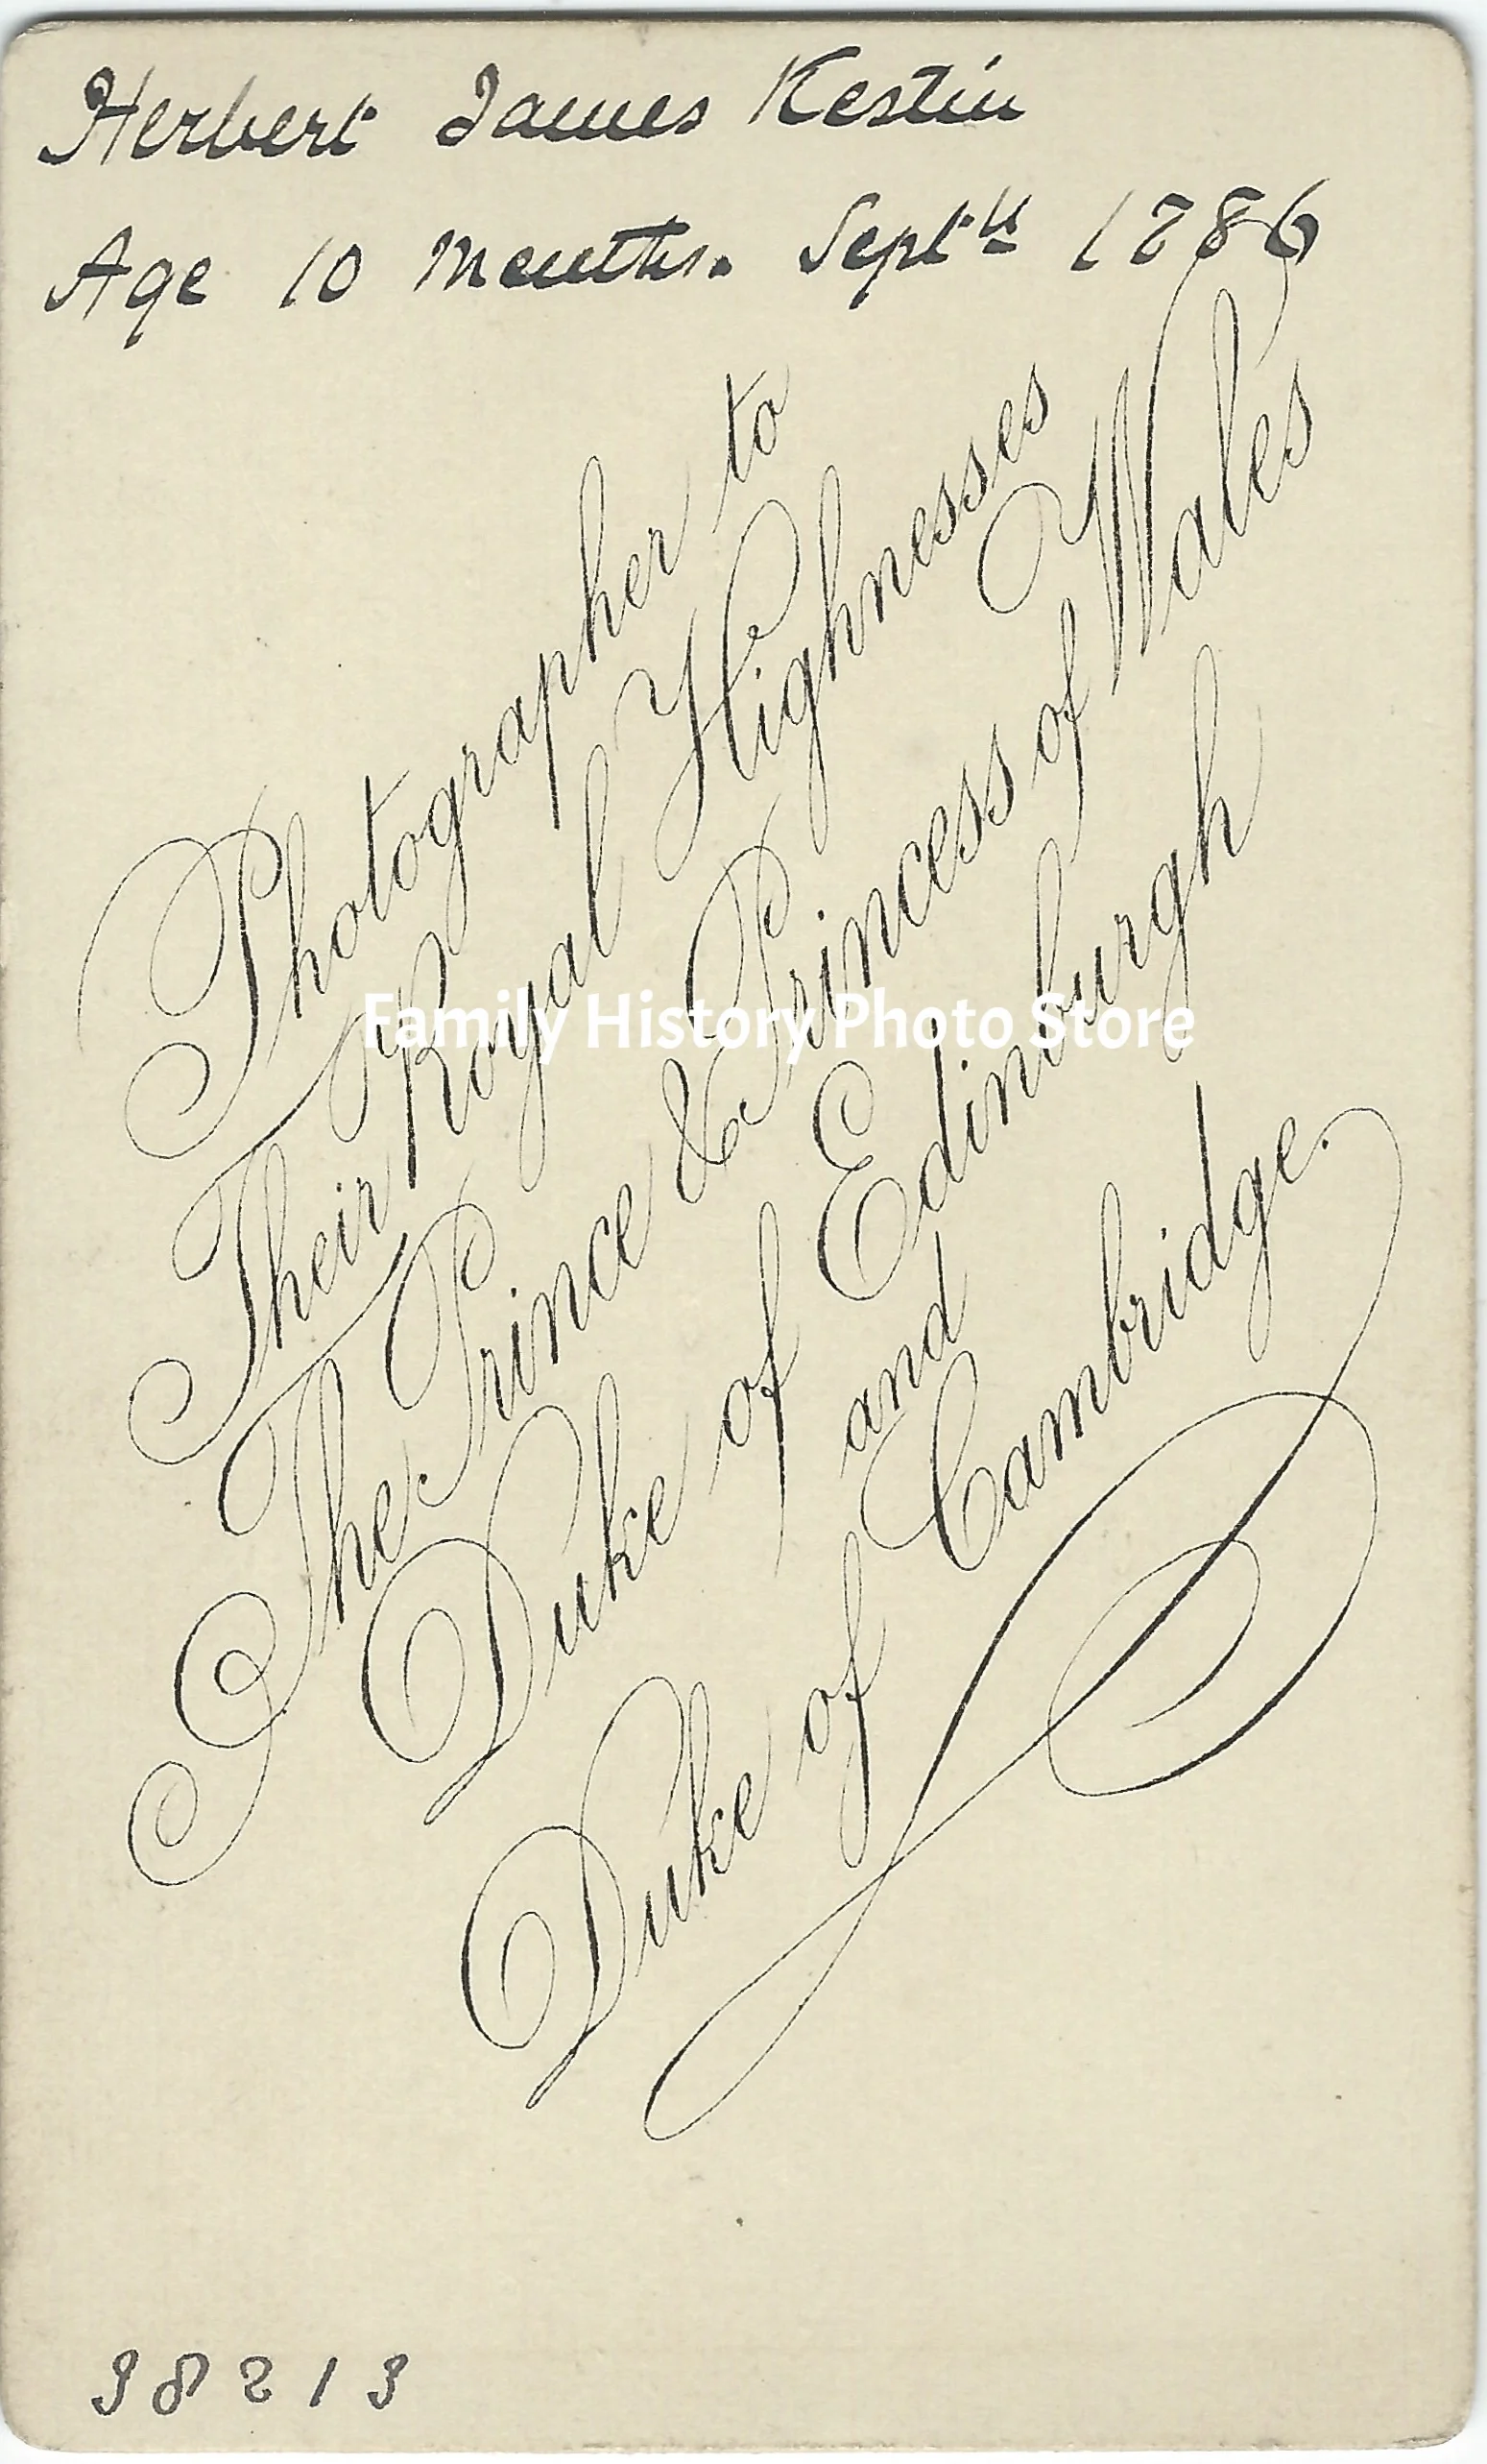 Herbert James Kestin
Age 10 Months. Sept 1886
Photographer to
Their Royal Highnesses
The Prince & Princess of Wales
Duke of Edinburgh
and
Duke of Cambridge.
Family History Photo Store
38213